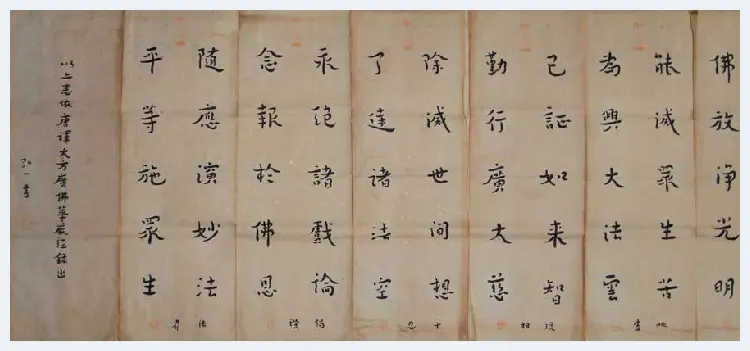 佛放淨光明
能滅眾生苦
為興大法雲
已証如来智
勤行廣大慈
現相
除滅世间想
了達诸法空
十忍
永絕諸戲論
念報於佛恩
隨應演妙法
平等施眾生
以上悉依唐譯大方廣佛華嚴經録出
弘一書